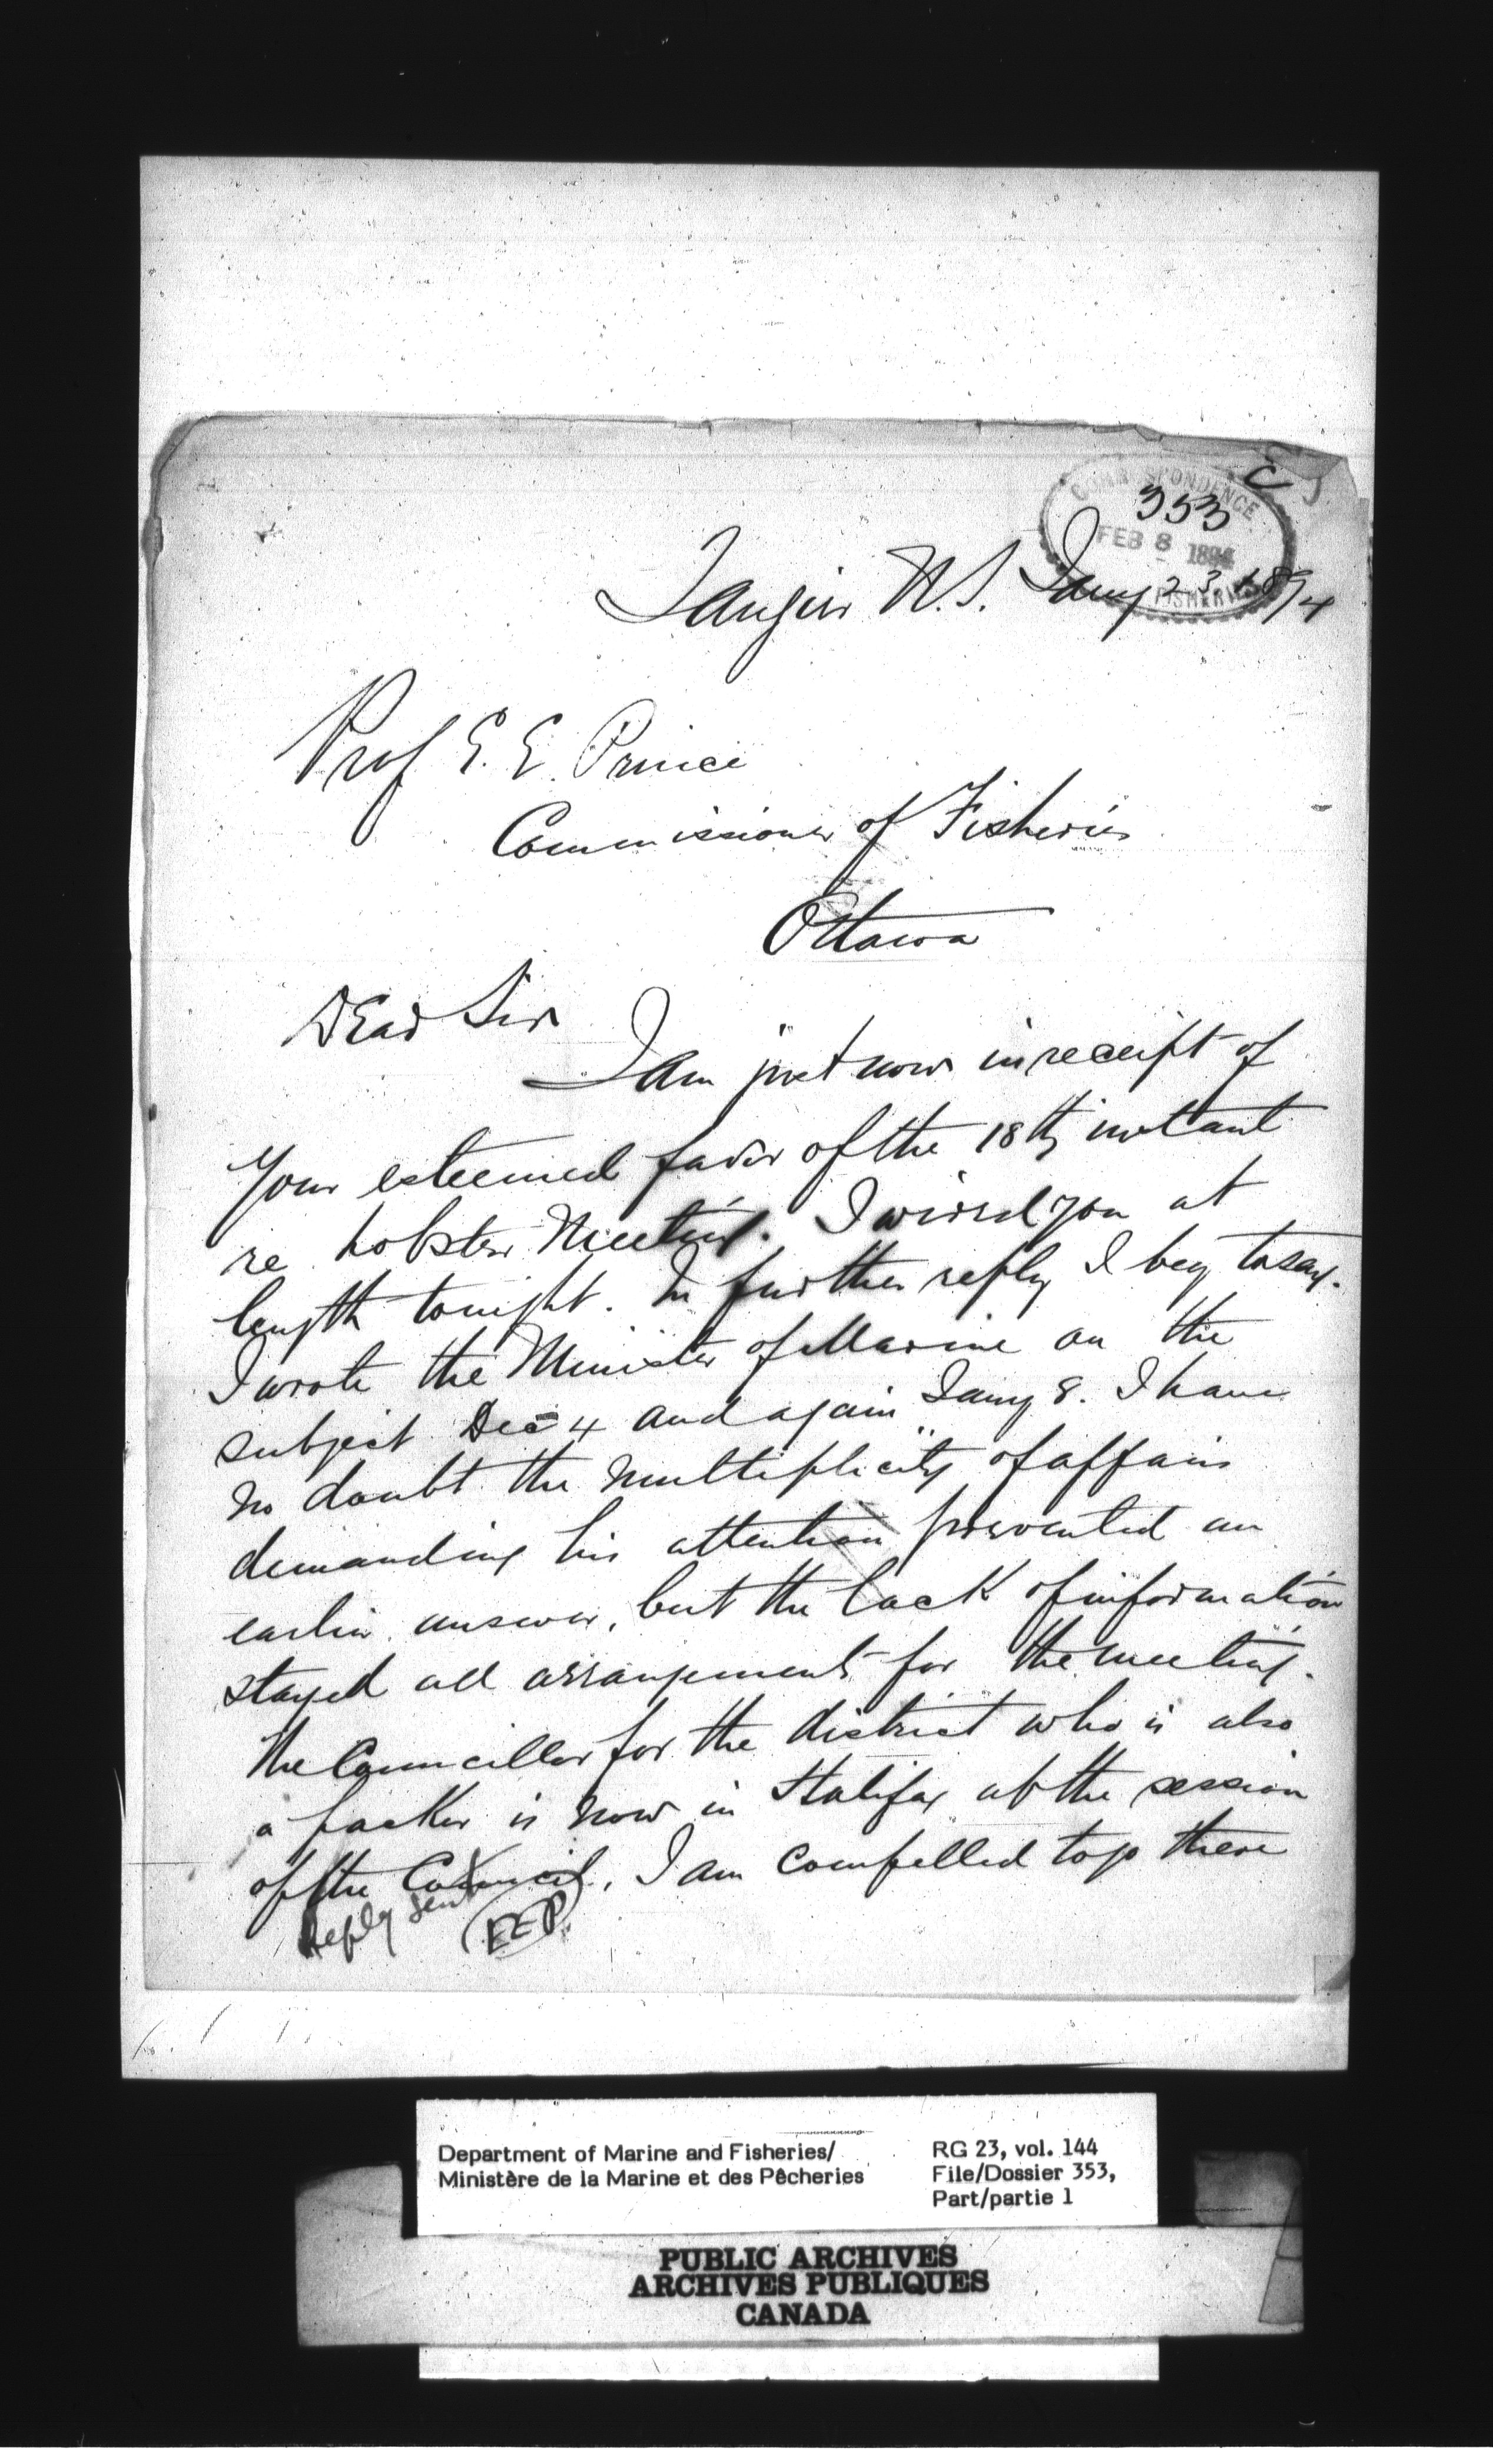 CORRESPONDENCE
353
FEB 8 1894
FISHERIES
Tangier N.S. Jany 23, 1894
Prof E. E. Prince
Commissioner of Fisheries
Ottawa
Dear Sir
I am just now in receipt of
Your esteemed favor of the 18th instant
re lobster Meeting. I wired you at
length tonight. In further reply I beg to say.
I wrote the Minister of Marine on the
subject Dec 4 and again Jany 8. I have
no doubt the multiplicity of affairs
demanding his attention prevented an
earlier answer, but the lack of information
stayed all arrangements for the meeting.
The Councillor for the district who is also
a packer is now in Halifax at the session
of the Council. I am compelled to go there
Reply sent
EEP
Department of Marine and Fisheries/
Ministère de la Marine et des Pêcheries
RG 23, vol. 144
File/Dossier 353,
Part/partie 1
PUBLIC ARCHIVES
ARCHIVES PUBLIQUES
CANADA